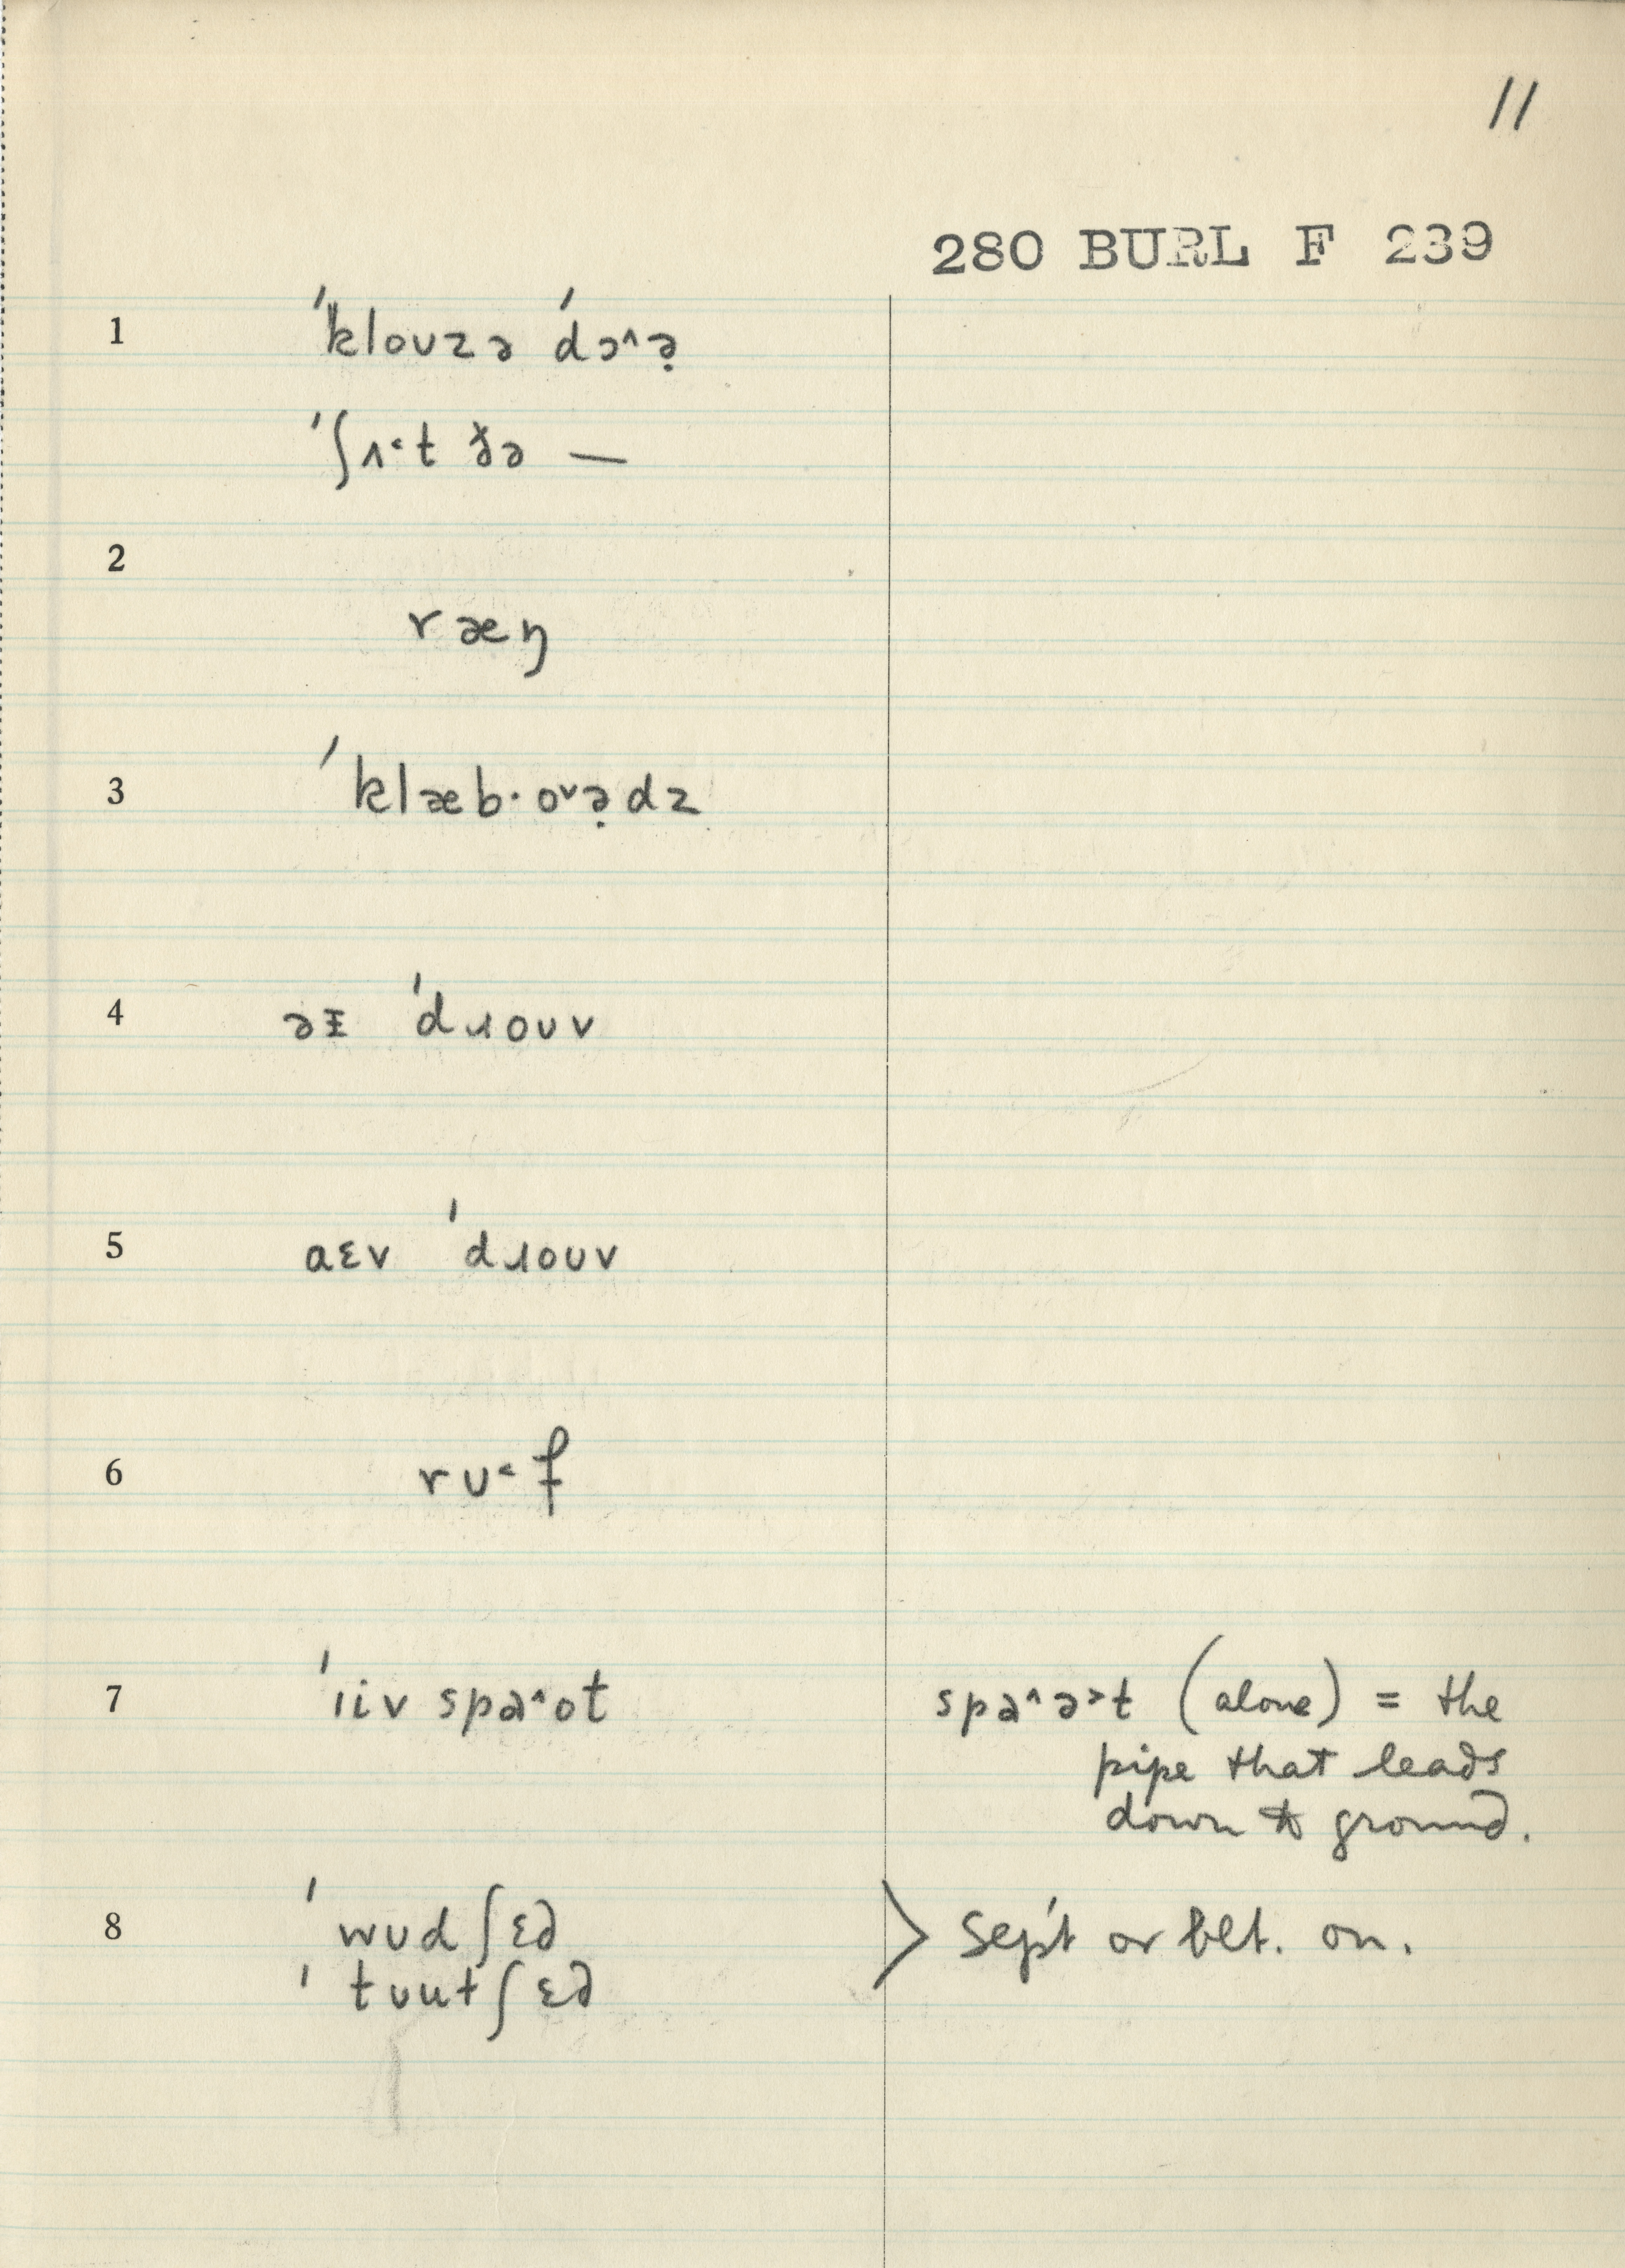 11
280 BURL F 239
1 ˈklouzə ˈdɔ^ə̣
ˈʃʌ˂t ðə —
2
ræŋ
3 ˈklæb·oᵛə̣dz
4 əɪ ˈdɹouv
5 aɛv ˈdɹouv
6 rʊ˂f
7 ˈiiv spa^ot spa^ə˃t (alone) = the
pipe that leads
down to ground.
8 ˈwʊdʃɛd > Sep't or blt. on.
ˈtuutʃɛd